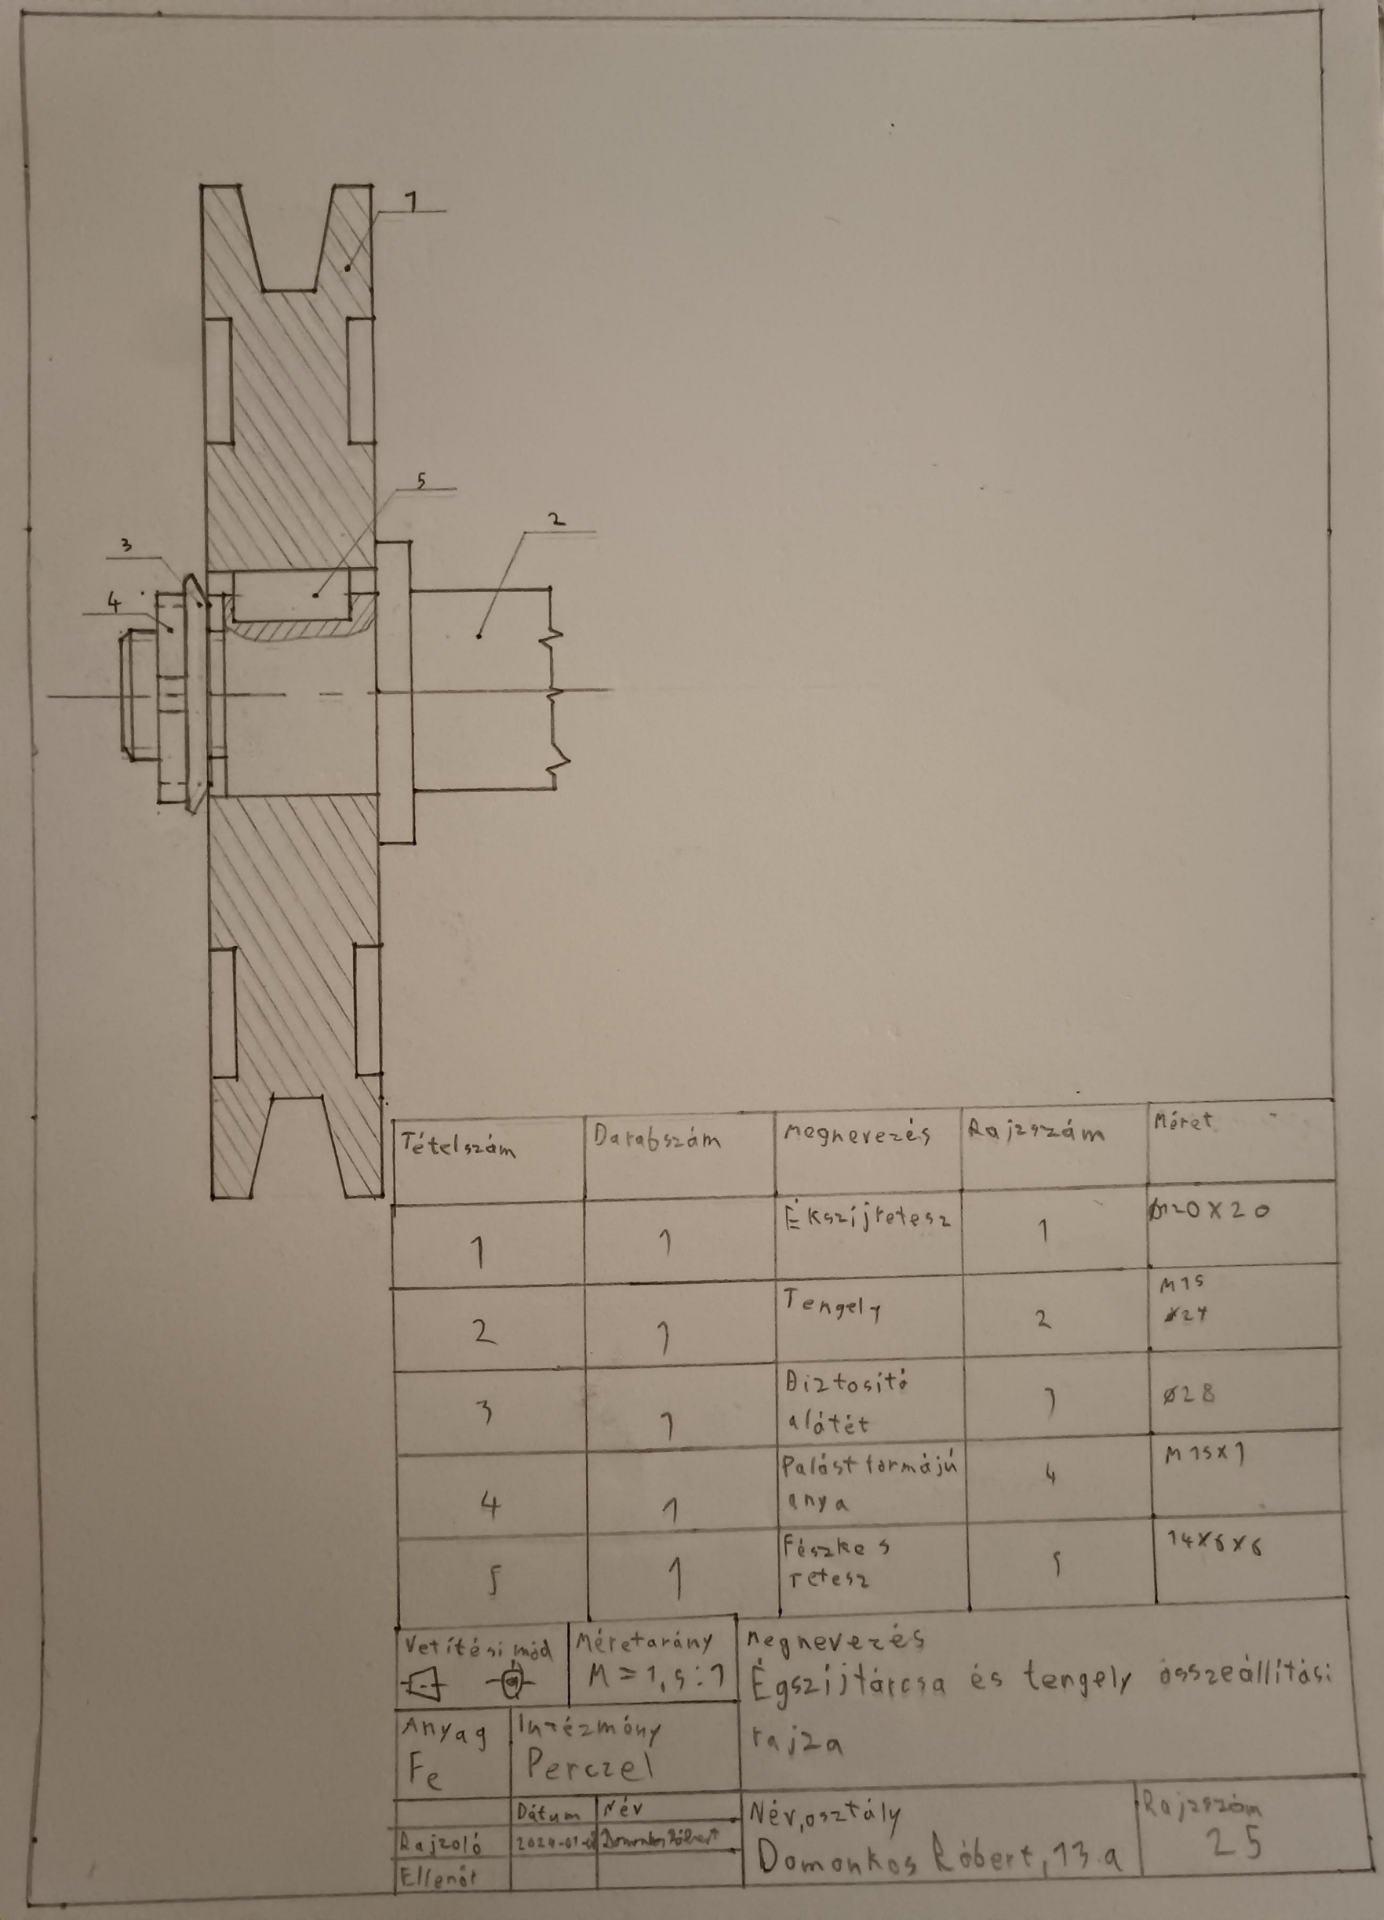 1
5
2
3
4
Tételszám Darabszám Megnevezés Rajzszám Méret
1 1 Ékszíjretesz 1 ø120x20
2 1 Tengely 2 M15
ø24
3 1 Biztosító
alátét 3 ø28
4 1 Palást formájú
anya 4 M15x1
5 1 Fészkes
retesz 5 14x6x6
Vetítési mód Méretarány
M=1,5:1
Megnevezés
Égszíjtárcsa és tengely összeállítási
rajza
Anyag
Fe
Intézmény
Perczel
Dátum Név
Rajzoló Domonkos Róbert
Ellenőr
Név,osztály
Domonkos Róbert, 13.a
Rajzszám
25